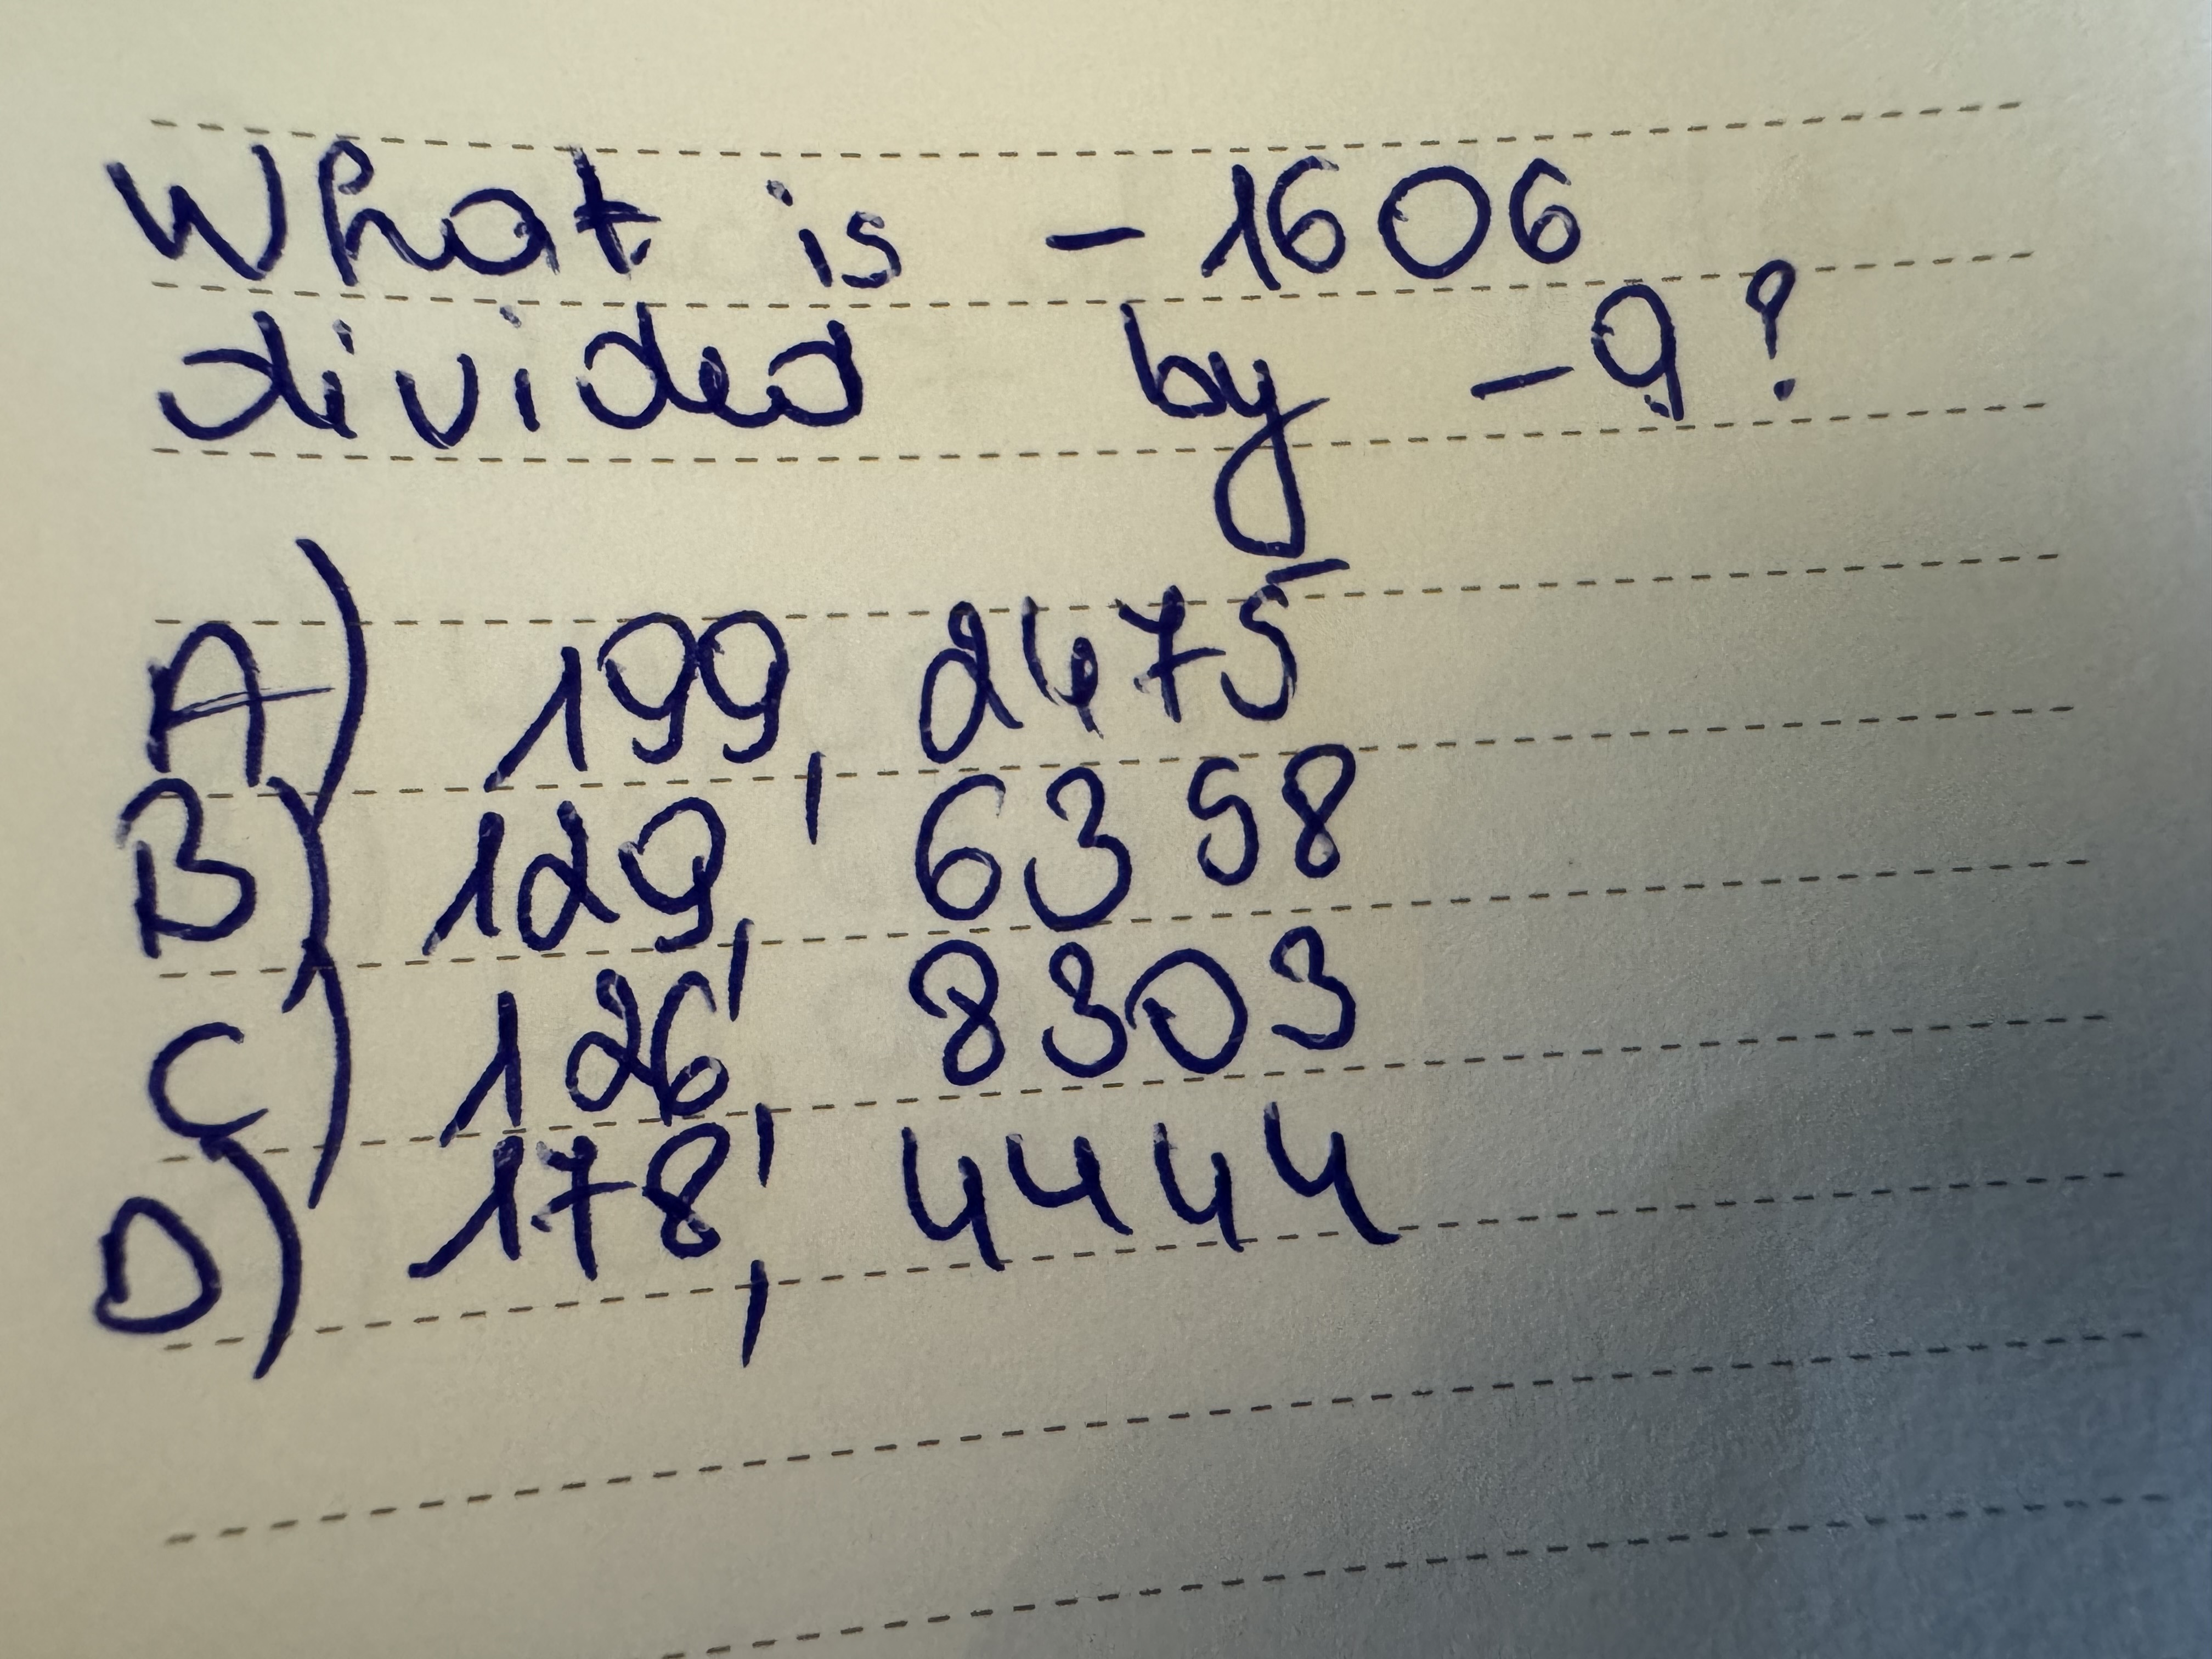 What is -1606
divided by -9?
A) 199, 2475
B) 129, 6358
C) 126, 8303
D) 178, 4444